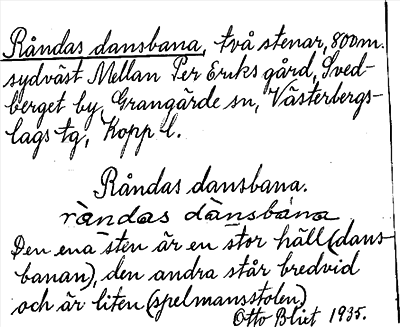 Råndas dansbana, två stenar, 800m.
sydväst Mellan Per Eriks gård, Sved-
berget by, Grangärde sn, Västerbergs-
lags tg, Kopp l.
Råndas dansbana.
ràndas dànsbána
Den ena sten är en stor häll (dans-
banan), den andra står bredvid
och är liten (spelmansstolen)
Otto Blixt 1935.